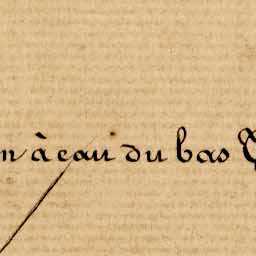 n à eau du bas